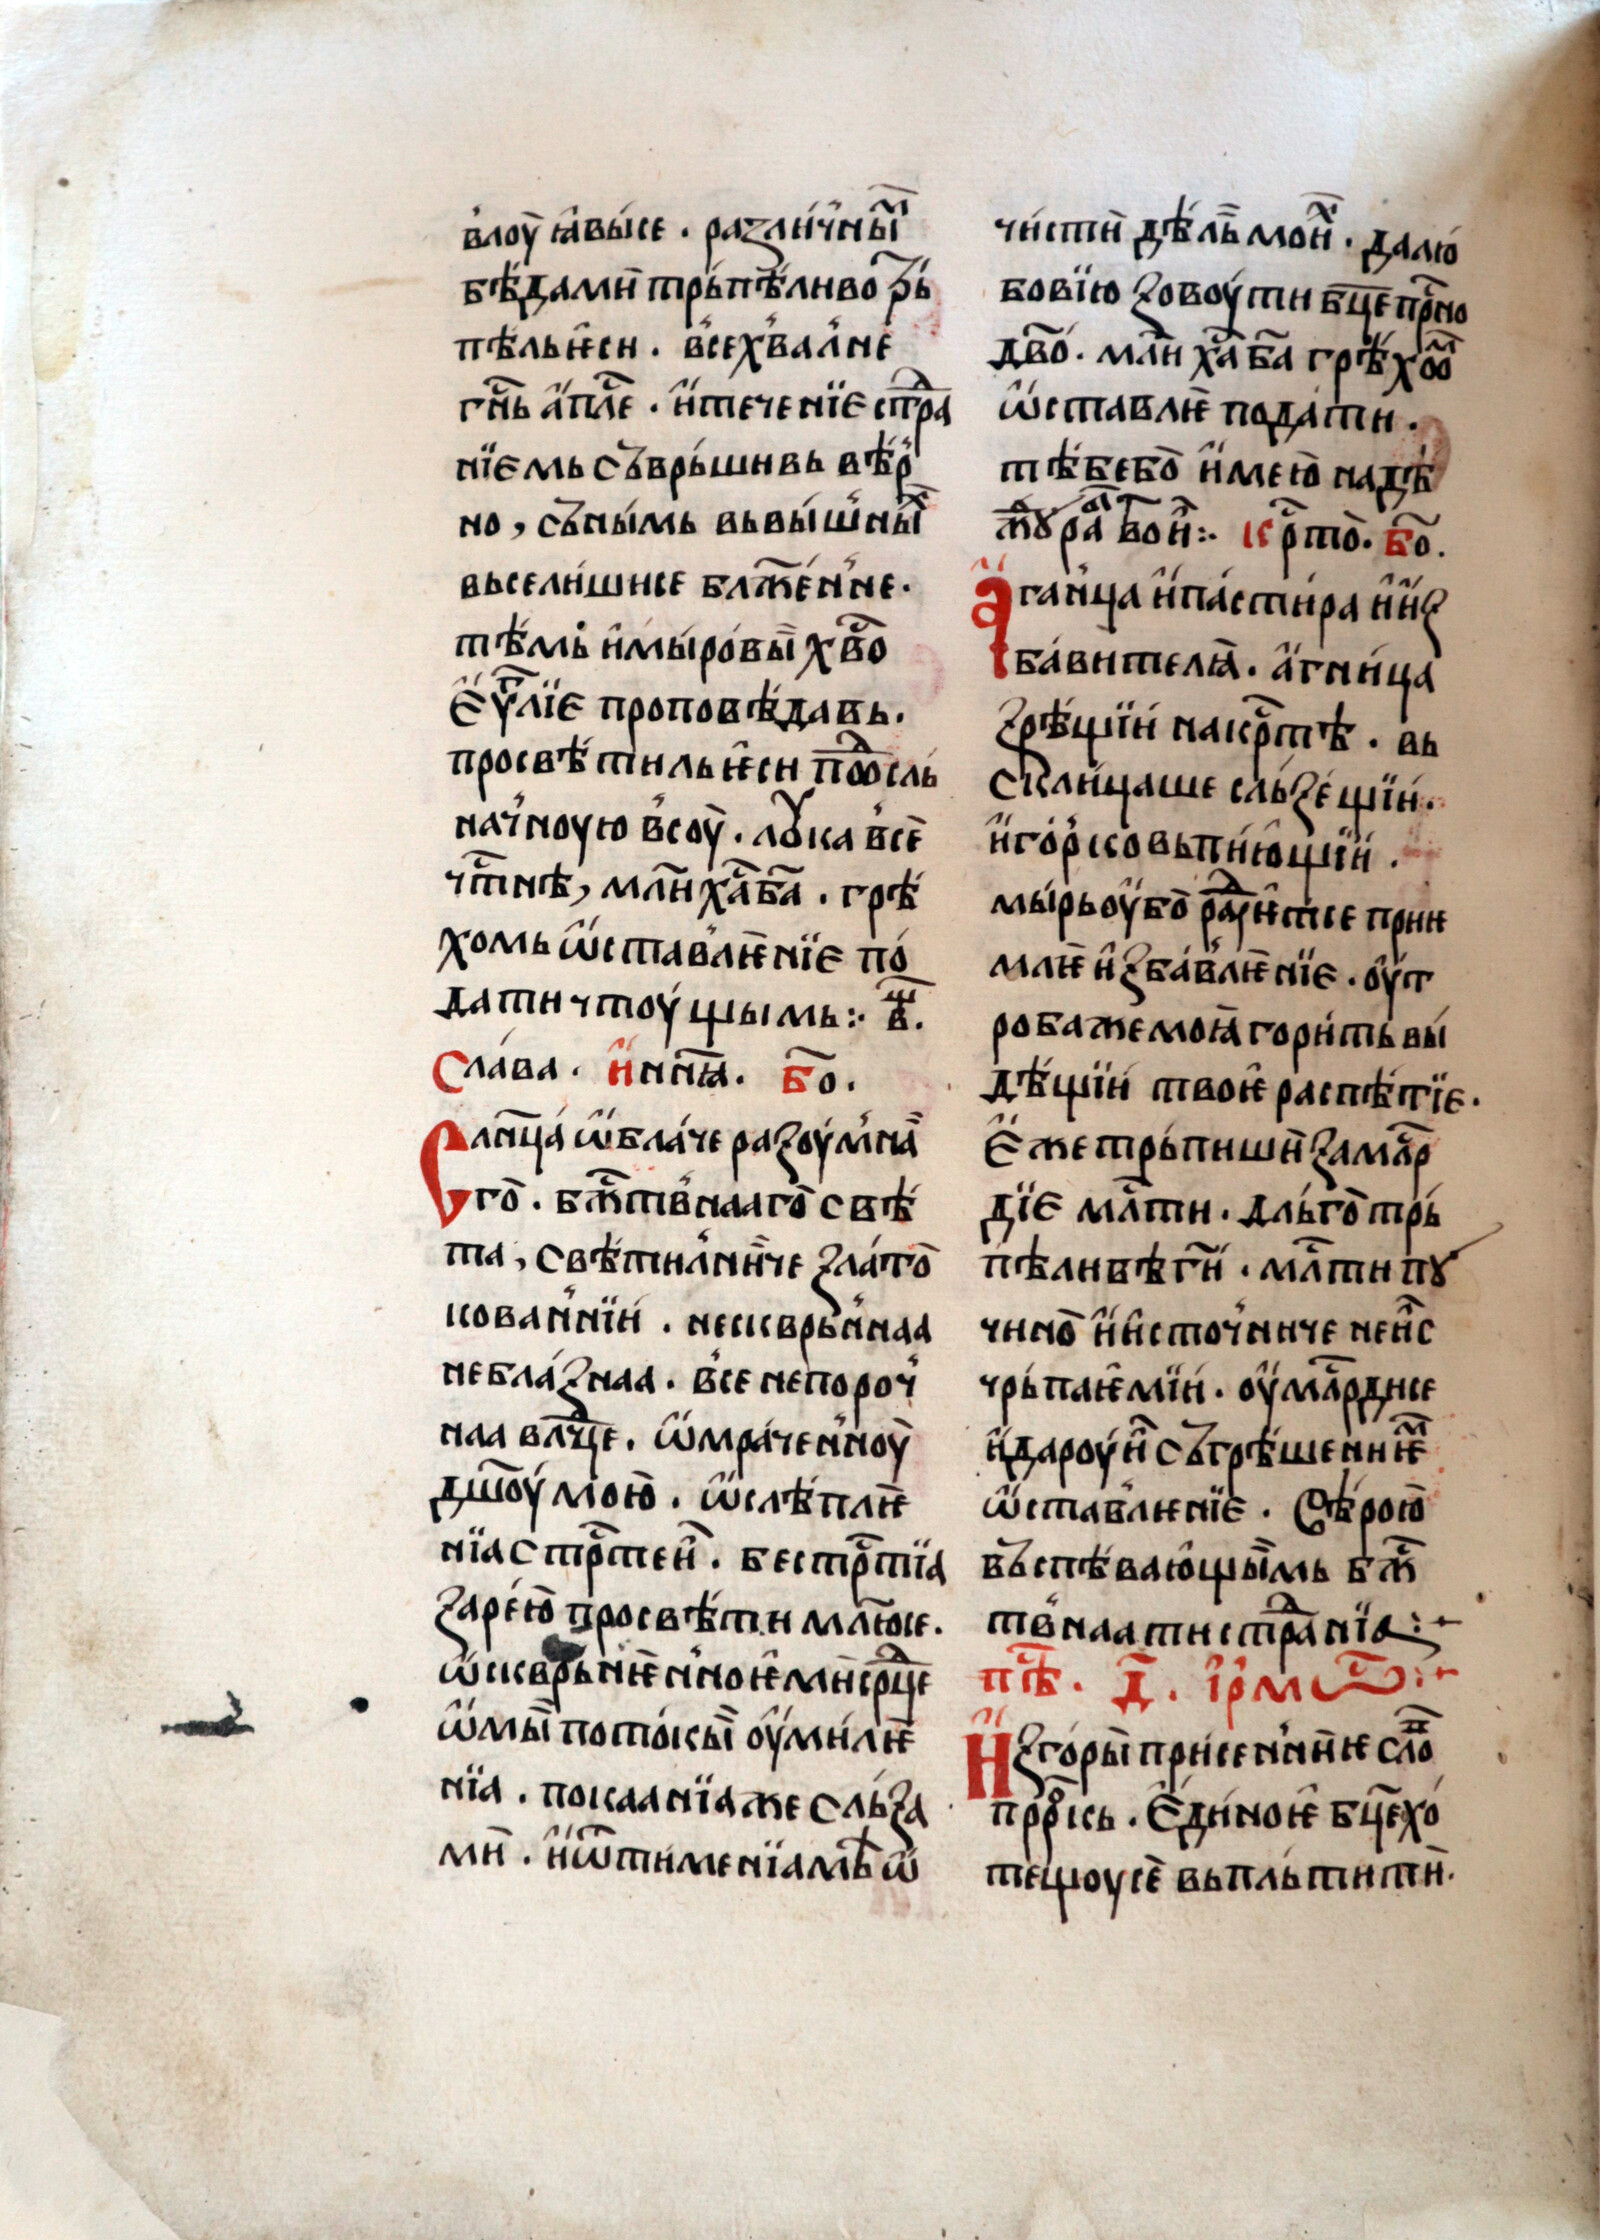 влоу ꙗвьі́се . разли́чныⷨ
бѣ́дами трьпѣ́ливо ꙋ҆трь
пѣ́льѥси . в̾сехва́л̾не
гн҃ь а҆пⷭ҇ле . и҆ тече́нїе стрⷣа
нїемь съврь́шивь вѣ́р̾
но , съни́мь вьвы́ш̾ныⷯ
вьсели́шисе блаже́н̾не .
тѣ́мь и҆мы́ровы хв҃о
е҆ѵⷢ҇лїе проповѣ́давь .
просвѣти́льѥси поⷣсль
нач̾ноую в̾соу . лꙋка в̾се
чⷭ҇тнѣ , мл҃и ха҃ ба҃ . грѣ
хомь ѿставлѥ́нїе по́
дати чтоу́щымь :· в҃ .
Сла́ва . и҆ нн҃ꙗ . бо҃ .
Слн҃ца ѡ҆бла́че разоу́м̾наⷢ
го . бжⷭ҇тв̾нааго свѣ́
та , свѣти́л̾ниче злато
кова́н̾нїи . нескврь́н̾наа
небла́знаа . в̾се непороч̾
наа влⷣце . ѡ҆мраче́н̾ноу
дш҃оу мою . ѡ҆слѣплѥ
нїа стрⷭ҇теи . бестрⷭ҇тїа
заре́ю просвѣ́ти млюсе .
ѡ҆скврьнѥ́н̾ноѥ ми срⷣце
ѡ҆мыи пото́кы оу҆ми́лѥ
нїа . покаа́нїа же сльза
ми . и҆ ѿтимени́а мѣ ѿ
чи́сти дѣ́ль мои́ⷯ . да лю
бовїю зовоу ти бц҃е прⷭ҇но
дв҃о . мл҃и ха҃ ба҃ грѣ́хоⷨ
ѿставлѥ пода́ти .
тѣ́бебо и҆мею надѣ
жⷣꙋ раⷠ твои :· крⷭ҇то . бо҃ .
А҆ган̾ца и҆ па́стира и҆ и҆з
ба́вителꙗ . а҆гни́ца
зрѣ́щїи на крⷭ҇тѣ . вь
скли́цаше сльзе́щїи .
и҆ го́р̾ко вьпи́ющїи .
мы́рь оу҆бо раⷣуѥтсе прїи
млѥ и҆збавлѥ́нїе . оу҆т
роба же моꙗ гори́ть ви́
дѣ́щїи твоѥ распѣ́тїе .
Е҆же трьпиши за млⷭ҇р
дїе млⷭ҇ти . дль́го трь
пѣ́ливѣ ги҃ . млⷭ҇ти пꙋ
чино и҆ и҆сточ̾ниче неис
чрьпа́ѥмїи . оу҆млⷭ҇рдисе
и҆ дароуи съгрѣше́ниѥⷨ
ѿставлѥ́нїе . Сѣ́рою
въспѣ́вающымь бжⷭ҇
тв̾наа ти стрⷣанїа :·
пѣⷭ҇ . д҃ . і҆рмѡⷭ :·
И҆з го́ры присен̾нѥ сло
прⷪ҇рѡкь . Е҆ди́ноѥ бц҃е хо
тещоусе вьпль́тити .